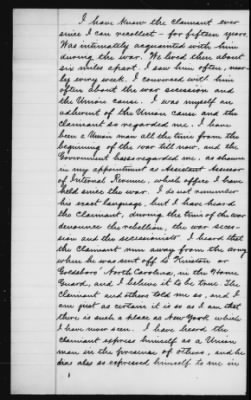 I have known the claimant ever
since I can recollect - for fifteen years.
Was intimately acquainted with him
during the war. We lived then about
six miles apart. I saw him often, near-
ly every week. I conversed with him
often about the war secession and
the Union cause. I was myself an
adherent of the Union cause and the
claimant so regarded me. I have
been a Union man all the time from the
beginning of the war till now, and the
Government has so regarded me, as shown
in my appointment as Assistant Assessor
of Internal Revenue, which office I have
held since the war. I do not remember
his exact language, but I have heard
the claimant, during the time of the war
denounce the rebellion, the war seces-
sion and the secessionists. I heard that
the claimant run away from the army
when he was sent off to Kinston or
Goldsboro' North Carolina, in the Home
Guard, and I believe it to be true. The
claimant and others told me so, and I
am just as certain it is so as I am that
there is such a place as New York which
I have never seen. I have heard the
claimant express himself as a Union
man in the presence of others, and he
has also so expressed himself to me in